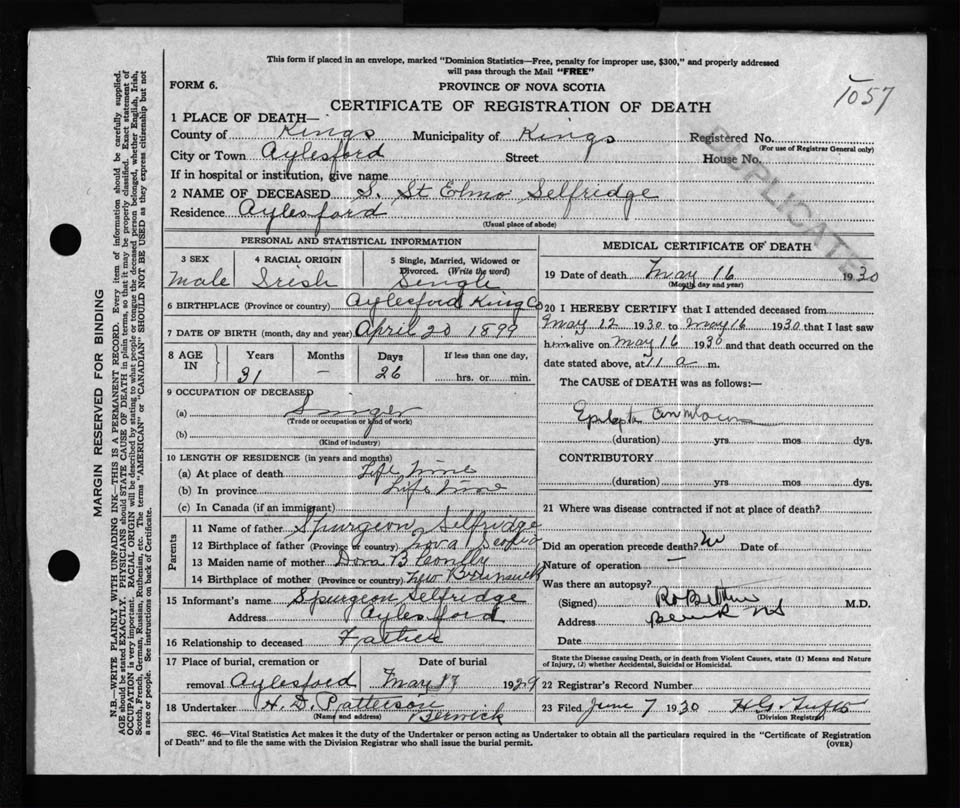 This form if placed in an envelope, marked "Dominion Statistics—Free, penalty for improper use, $300," and properly addressed
will pass through the Mail "FREE"
FORM 6.
PROVINCE OF NOVA SCOTIA
1057
CERTIFICATE OF REGISTRATION OF DEATH
DUPLICATE
1 PLACE OF DEATH—
County of Kings Municipality of Kings Registered No.
(For use of Registrar General only)
City or Town Aylesford Street House No.
If in hospital or institution, give name
2 NAME OF DECEASED S. St Elmo Selfridge
Residence Aylesford
(Usual place of abode)
PERSONAL AND STATISTICAL INFORMATION
3 SEX 4 RACIAL ORIGIN 5 Single, Married, Widowed or
Divorced. (Write the word)
Male Irish Single
6 BIRTHPLACE (Province or country) Aylesford King Co
7 DATE OF BIRTH (month, day and year) April 20 1899
8 AGE IN Years Months Days If less than one day,
31 — 26 hrs. or min.
9 OCCUPATION OF DECEASED
(a) Singer
(Trade or occupation or kind of work)
(b)
(Kind of industry)
10 LENGTH OF RESIDENCE (in years and months)
(a) At place of death Life Time
(b) In province Life Time
(c) In Canada (if an immigrant)
Parents
11 Name of father Spurgeon Selfridge
12 Birthplace of father (Province or country) Nova Scotia
13 Maiden name of mother Dora B
14 Birthplace of mother (Province or country) New Brunswick
15 Informant's name Spurgeon Selfridge
Address Aylesford
16 Relationship to deceased Father
17 Place of burial, cremation or Date of burial
removal Aylesford May 1929
18 Undertaker H. D. Patterson
(Name and address) Berwick
MEDICAL CERTIFICATE OF DEATH
19 Date of death May 16 1930
(Month, day and year)
20 I HEREBY CERTIFY that I attended deceased from
May 12 1930 to May 16 1930 that I last saw
him alive on May 16 1930 and that death occurred on the
date stated above, at 11 a m.
The CAUSE of DEATH was as follows:—
(duration) yrs mos dys.
CONTRIBUTORY
(duration) yrs mos dys.
21 Where was disease contracted if not at place of death?
Did an operation precede death? No Date of
Nature of operation —
Was there an autopsy?
(Signed) M.D.
Address Berwick NS
Date
State the Disease causing Death, or in death from Violent Causes, state (1) Means and Nature
of Injury, (2) whether Accidental, Suicidal or Homicidal.
22 Registrar's Record Number
23 Filed June 7 1930 H G
(Division Registrar)
SEC. 46—Vital Statistics Act makes it the duty of the Undertaker or person acting as Undertaker to obtain all the particulars required in the "Certificate of Registration
of Death" and to file the same with the Division Registrar who shall issue the burial permit.
(OVER)
MARGIN RESERVED FOR BINDING
N.B.—WRITE PLAINLY WITH UNFADING INK—THIS IS A PERMANENT RECORD. Every item of information should be carefully supplied.
AGE should be stated EXACTLY. PHYSICIANS should STATE CAUSE OF DEATH in plain terms, so that it may be properly classified. Exact statement of
OCCUPATION is very important. RACIAL ORIGIN will be described by stating to what people or tongue the deceased person belonged, whether English, Irish,
Scotch, French, German, Russian, Ruthenian, etc. The terms "AMERICAN" or "CANADIAN" SHOULD NOT BE USED as they express citizenship but not
a race or people. See instructions on back of Certificate.